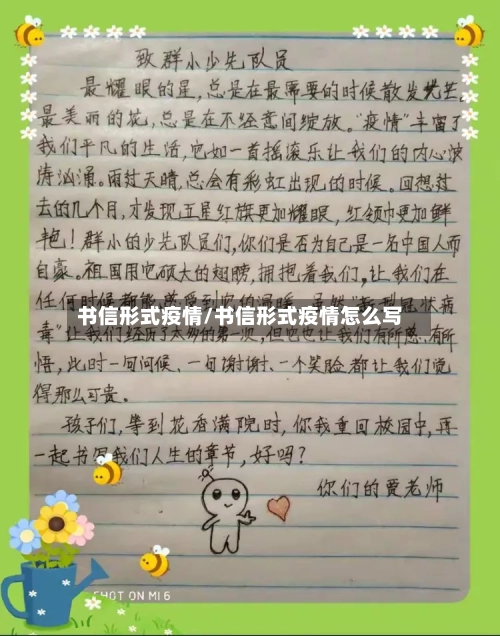 致群小少先队员
最耀眼的星，总是在最需要的时候散发光芒。
最美丽的花，总是在不经意间绽放。“疫情”丰富了
我们平凡的生活，它如一首摇滚乐让我们的内心惊
涛汹涌。雨过天晴，总会有彩虹出现的时候。回想过
去的几个月，才发现五星红旗更加耀眼，红领巾更加鲜
艳！群小的少先队员们，你们是否为自己是一名中国人而
自豪。祖国用它硕大的翅膀，拥抱着我们，让我们在
任何时候都能感受到它的温暖。虽然“新型冠状病
书信形式疫情/书信形式疫情怎么写
毒”让我们经历了太多的第一次，但它也让我们有所感、有所
悟，此时一句问候、一句谢谢、一个笑脸都让我们觉
得那么可贵。
孩子们，等到花香满院时，你我重回校园中，再
一起书写我们人生的章节，好吗？
你们的贾老师
SHOT ON MI 6